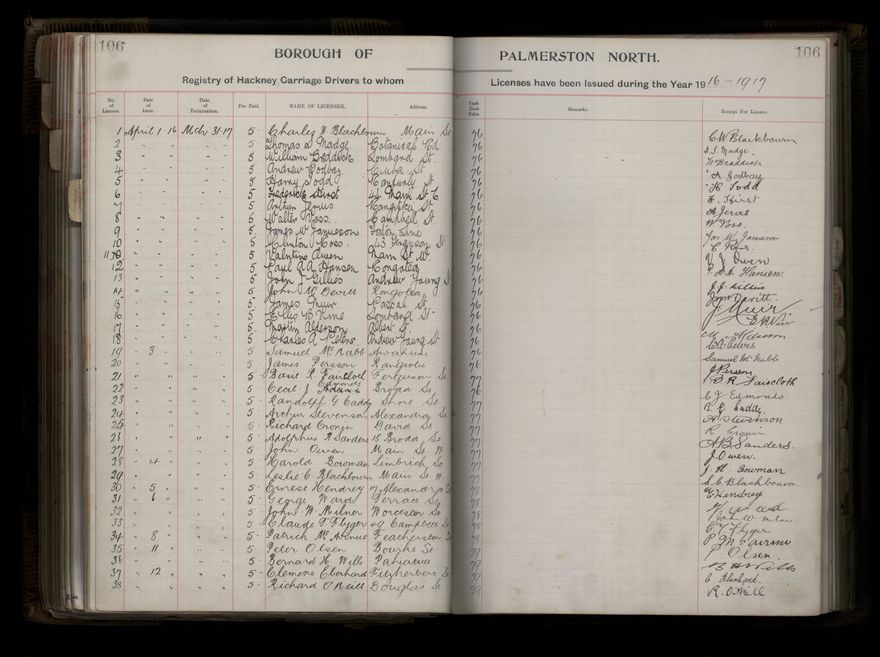 106 BOROUGH OF PALMERSTON NORTH. 106
Registry of Hackney Carriage Drivers to whom Licenses have been Issued during the Year 1916-1917
No. of License. Date of Issue. Date of Termination. Fee Paid. NAME OF LICENSEE. Address. Cash Book Folio. Remarks. Receipt For License.
1 April 1 16 Mch 31 17 5 Charles W Blackbourn Main St 76 C W Blackbourn
2 " " " " 5 Thomas S Madge 76 T. S. Madge
3 " " " " 5 William Braddick Lombard St. 76 W Braddick
4 " " " " 5 Andrew Godbay Cuba St 76 A Godbay
5 " " " " 5 Harry Todd Ranfurly St 76 H Todd
6 " " " " 5 Frederick Hirst Main St 76 F. Hirst
7 " " " " 5 Arthur Jervis St 76 A Jervis
8 " " " " 5 Walter Voss. Campbell St 76 W Voss.
9 " " " " 5 James W Jamieson Line 76 Jas W. Jamieson
10 " " " " 5 Clinton Ross. 43 Ferguson St 76 C Ross.
11 " " " " 5 Valintine Owen Main St W. 76 V J Owen
12 " " " " 5 Paul A A Hansen Rongotea 76 P. A. A. Hansen.
13 " " " " 5 John J Gillies Andrew Young St 76 J. J. Gillies
14 " " " " 5 John McDevitt Rongotea 76 McDevitt.
15 " " " " 5 James Muir Pascal St. 76 J Muir
16 " " " " 5 Ellis B Vine Lombard St 76
17 " " " " 5 Martin Alderson Albert St. 76
18 " " " " 5 Charles A Peters Andrew Young St 76
19 " 3 " " 5 Samuel McNabb Awahuri 76 Samuel McNabb
20 " " " " 5 James Persson Rangiotu 76 J Persson
21 " " " " 5 Basil R Faircloth Ferguson St 77 B R Faircloth
22 " " " " 5 Cecil J Edmonds Broad St 76 C J Edmonds
23 " " " " 5 Randolph G Caddy Short St 77 R. G. Caddy
24 " " " " 5 Arthur Stevenson Alexandra St 77 A Stevenson
25 " " " " 5 Richard Cronin David St 77 R Cronin
26 " " " " 5 Adolphus B Sanders 15 Broad St 77 A B Sanders.
27 " " " " 5 John Owen Main St W 77 J. Owen.
28 " 4 " " 5 Harold Bowman Limbrick St 77 J. H. Bowman
29 " " " " 5 Leslie C Blackbourn Main St W 77 L C Blackbourn
30 " 5 " " 5 Ernest Hendrey 17 Alexandra St 78 E Hendrey
31 " 6 " " 5 George Ward Terrace St 78 G Ward
32 " " " " 5 John W Milner Worcester St 78 John W. Milner.
33 " " " " 5 Claude T Flyger 49 Campbell St 78 C T Flyger
34 " 8 " " 5 Patrick McAvenue Featherston St 78
35 " 11 " " 5 Peter Olsen Bourke St 79 P Olsen.
36 " " " " 5 Bernard H Wills Pahiatua 79 B H Wills
37 " 12 " " 5 Clemens Eberhard Fitzherbert St 79 C Eberhard.
38 " " " " 5 Richard O'Neill Douglas St 79 R. O'Neill